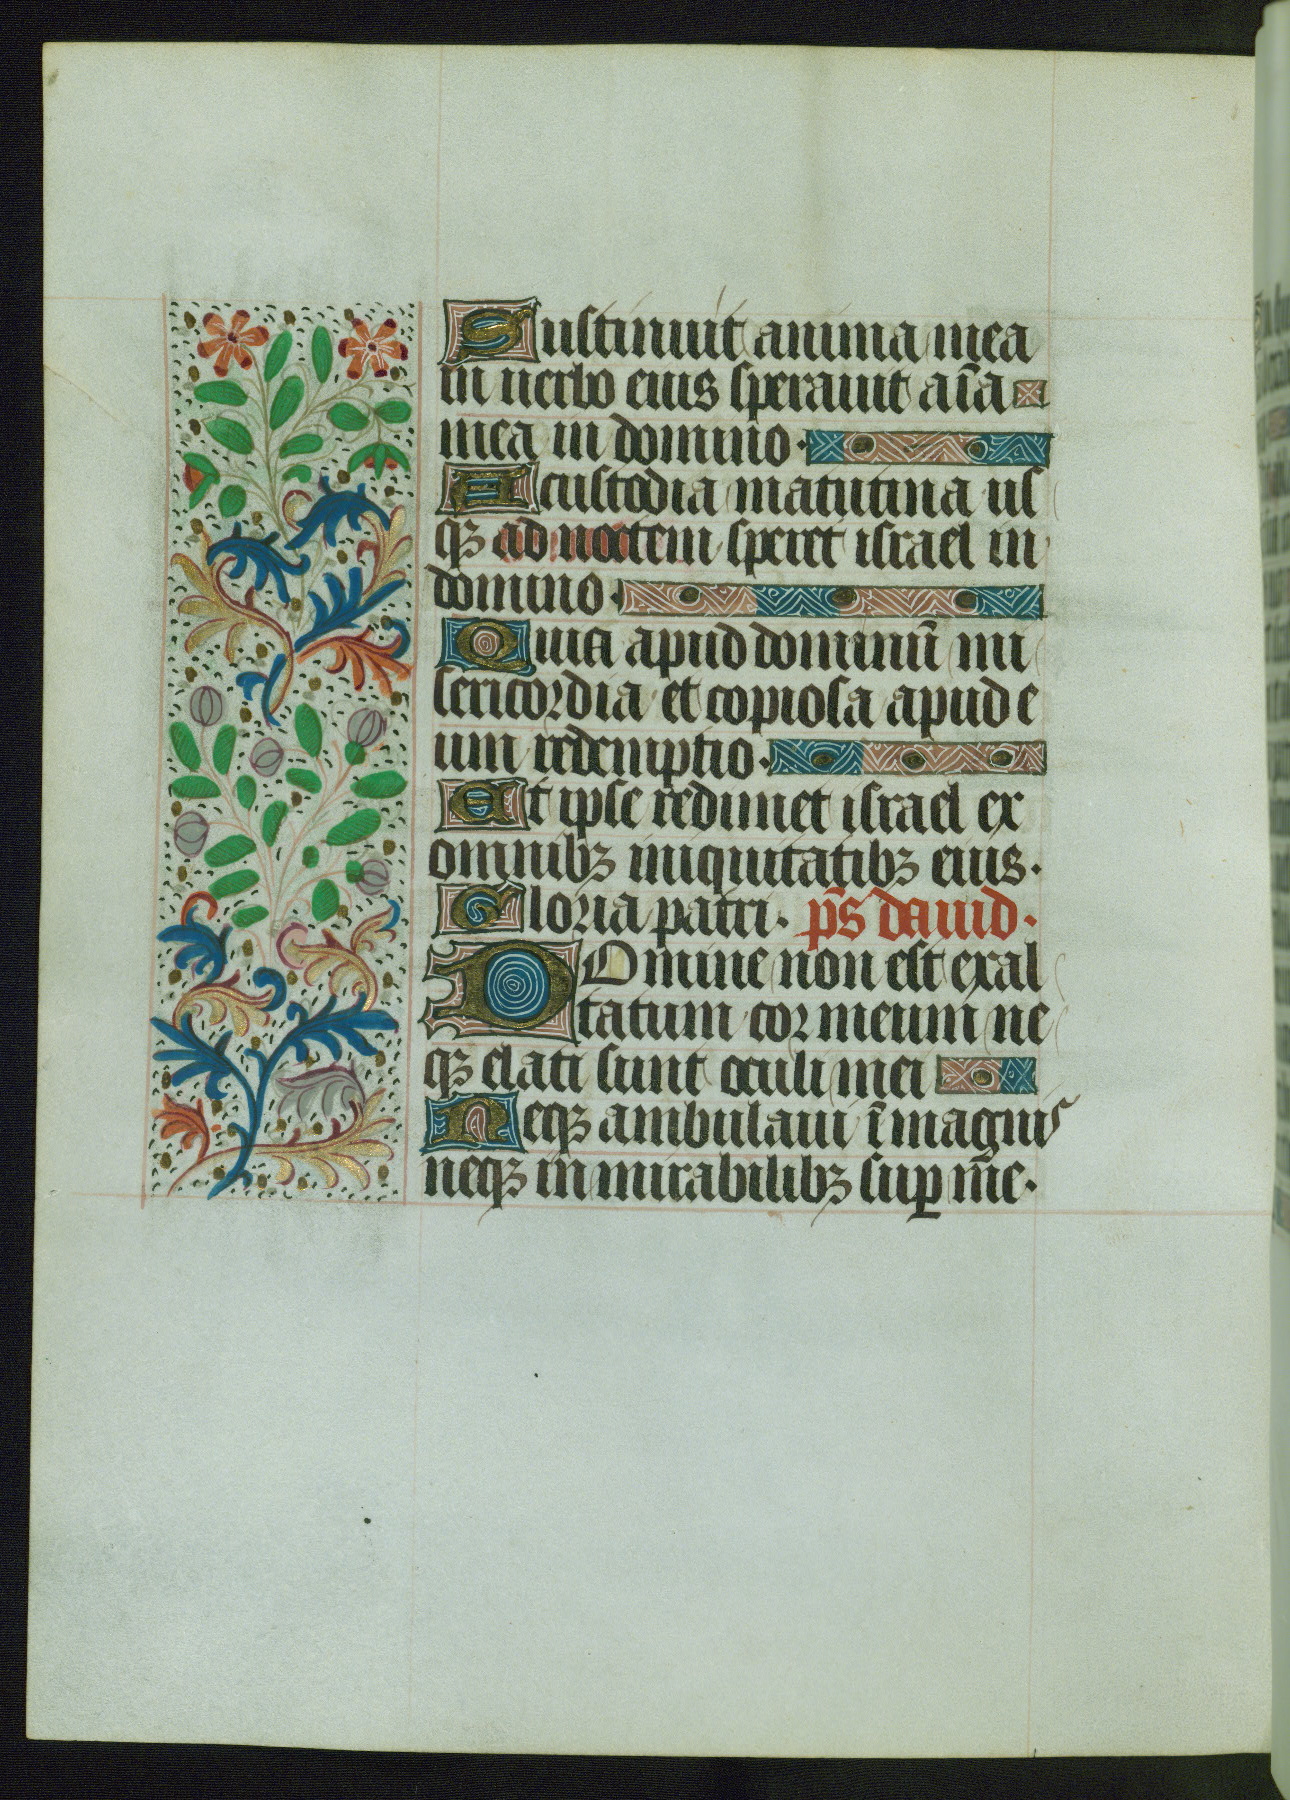 Sustinuit anima mea
in uerbo eius sperauit aīa
mea in domino·
A custodia matutina us
qꝫ ad noctem speret israel in
domino·
Quia apud dominū mi
sericordia et copiosa apud e
um redemptio·
Et ipse redimet israel ex
omnibꝫ iniquitatibꝫ eius·
Gloria patri· p̄s dauid·
DOmine non est exal
tatum cor meum ne
qꝫ elati sunt oculi mei
Neqꝫ ambulaui ī magnis
neqꝫ in mirabilibꝫ suꝑ m̄e·